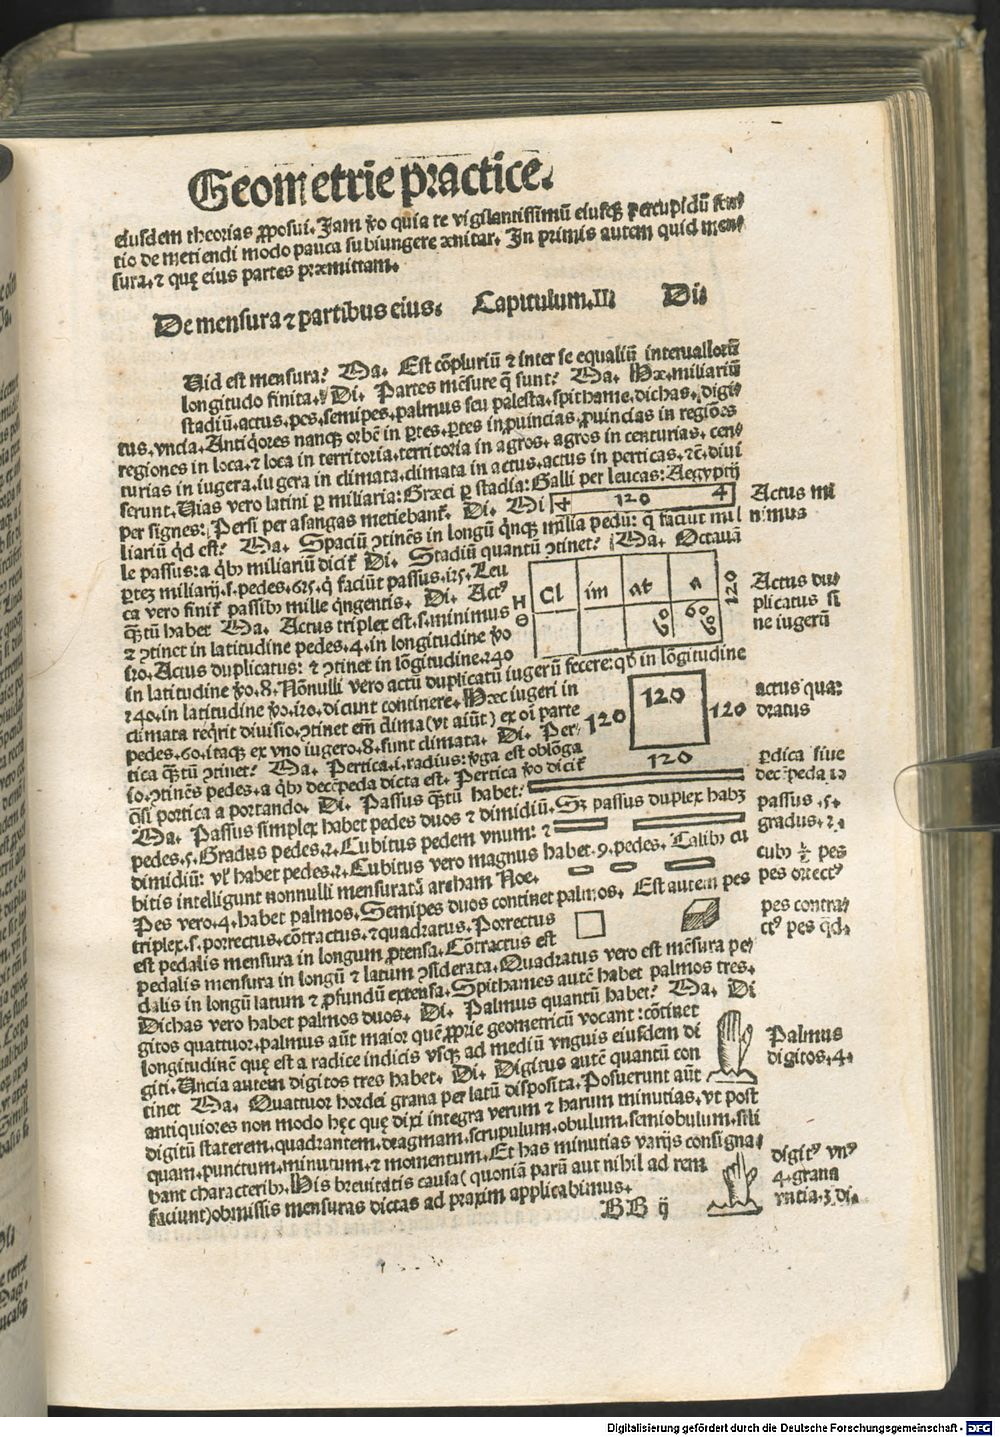 Geometrie practice.
eiusdem theorias ꝓposui. Jam ꝟo quia te vigilantissimū eiusqꝫ
tio de metiendi modo pauca subiungere In primis autem quid men⸗
sura, ⁊ quę eius partes præmittam.
De mensura ⁊ partibus eius. Capitulum.II. Di.
Uid est mensura? Ma. Est cōpluriū ⁊ inter se equaliū interuallorū
longitudo finita. Di. Partes mēsure q̄ sunt? Ma. Hæ. miliariū
stadiū, actus, pes, semipes, palmus seu palesta, spithame, dichas, digi⸗
tus, vncia. Antiqores nanqꝫ orbē in ꝑtes, ꝑtes in ꝓuincias, ꝓuincias in regiōes
regiones in loca, ⁊ loca in territoria, territoria in agros, agros in centurias, cen⸗
turias in iugera, iugera in climata, climata in actus, actus in perticas, ⁊c̄, diui
serunt. Uias vero latini ꝑ miliaria: Græci ꝑ stadia: Galli per leucas: Aegyptij
per signes: Persi per asangas metiebant᷑. Di. Mi
120 4
Actus mi
nimus
liariū qd est? Ma. Spaciū ꝯtinēs in longū qnqꝫ milia pedū: q̄ faciūt mil
le passus: a qbꝰ miliariū dicit᷑ Di. Stadiū quantū ꝯtinet? Ma. Octauā
ꝑteꝫ miliarij. s. pedes. 625. q̄ faciūt passus. 125. Leu
ca vero finit᷑ passibꝰ mille qngentis. Di. Actꝰ
Cl im at a
60 60
120
Actus du⸗
plicatus si
ne iugerū
qꝫtū habet Ma. Actus triplex est. s. minimus
⁊ ꝯtinet in latitudine pedes. 4. in longitudine ꝟo
120. Actus duplicatus: ⁊ ꝯtinet in lōgitudine. 240
in latitudine ꝟo. 8. Nōnulli vero actū duplicatū iugerū fecere: qꝫ in lōgitudine
240. in latitudine ꝟo. 120. dicunt continere. Hæc iugeri in
climata reqrit diuisio. ꝯtinet em̄ clima (vt aiūt) ex oī parte
120 120 120 120
actus qua⸗
dratus
pedes. 60. itaqꝫ ex vno iugero. 8. sunt climata. Di. Per⸗
tica qꝫtū ꝯtinet? Ma. Pertica. i. radius: ꝟga est oblōga
10. ꝯtinēs pedes. a qbꝰ decēpeda dicta est. Pertica ꝟo dicit᷑
qsi portica a portando. Di. Passus qꝫtū habet:
ꝑdica siue
decēpeda 10
Ma. Passus simplex habet pedes duos ⁊ dimidiū. Sꝫ passus duplex habꝫ
pedes. 5. Gradus pedes. 2. Cubitus pedem vnum: ⁊
passus. 5.
gradus. 2.
dimidiū: vl᷑ habet pedes. 2. Cubitus vero magnus habet. 9. pedes. Talibꝰ cu
bitis intelligunt nonnulli mensuratā archam Noe.
cubꝰ pes
pes
Pes vero. 4. habet palmos. Semipes duos continet palmos. Est autem pes
triplex. s. porrectus, cōtractus, ⁊ quadratus. Porrectus
est pedalis mensura in longum ꝓtensa. Cōtractus est
pes contra⸗
ctꝰ pes qd.
pedalis mensura in longū ⁊ latum ꝯsiderata. Quadratus vero est mēsura pe⸗
dalis in longū latum ⁊ ꝓfundū extensa. Spithames autē habet palmos tres.
Dichas vero habet palmos duos. Di. Palmus quantū habet? Ma. Di
gitos quattuor. palmus aūt maior quē ꝓprie geometricū vocant: cōtinet
longitudinē quę est a radice indicis vsqꝫ ad mediū vnguis eiusdem di
giti. Uncia autem digitos tres habet. Di. Digitus autē quantū con
Palmus
digitos. 4.
tinet Ma. Quattuor hordei grana per latū disposita. Posuerunt aūt
antiquiores non modo hęc quę dixi integra verum ⁊ harum minutias, vt post
digitū staterem, quadrantem, dragmam, scrupulum, obulum, semiobulum, sili
quam, punctum, minutum, ⁊ momentum. Et has minutias varijs consigna⸗
bant characteribꝰ. His breuitatis causa (quoniā parū aut nihil ad rem
faciunt) obmissis mensuras dictas ad praxim applicabimus.
digitꝰ vnꝰ
4. grana
vntia. 3. di.
BB ij
Digitalisierung gefördert durch die Deutsche Forschungsgemeinschaft - DFG